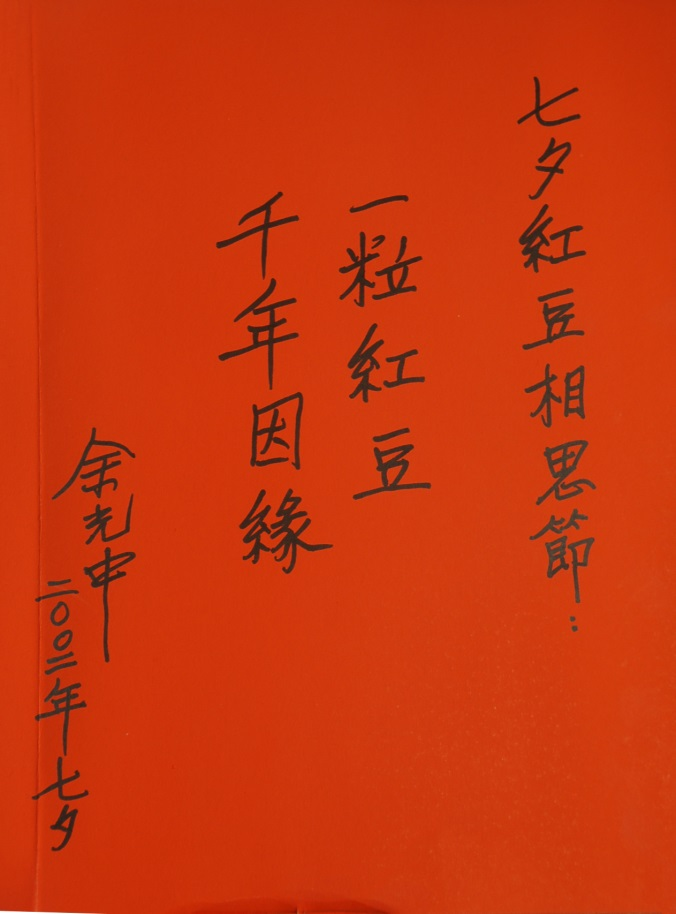 七夕紅豆相思節：
一粒紅豆
千年因緣
余光中
二〇〇二年七夕